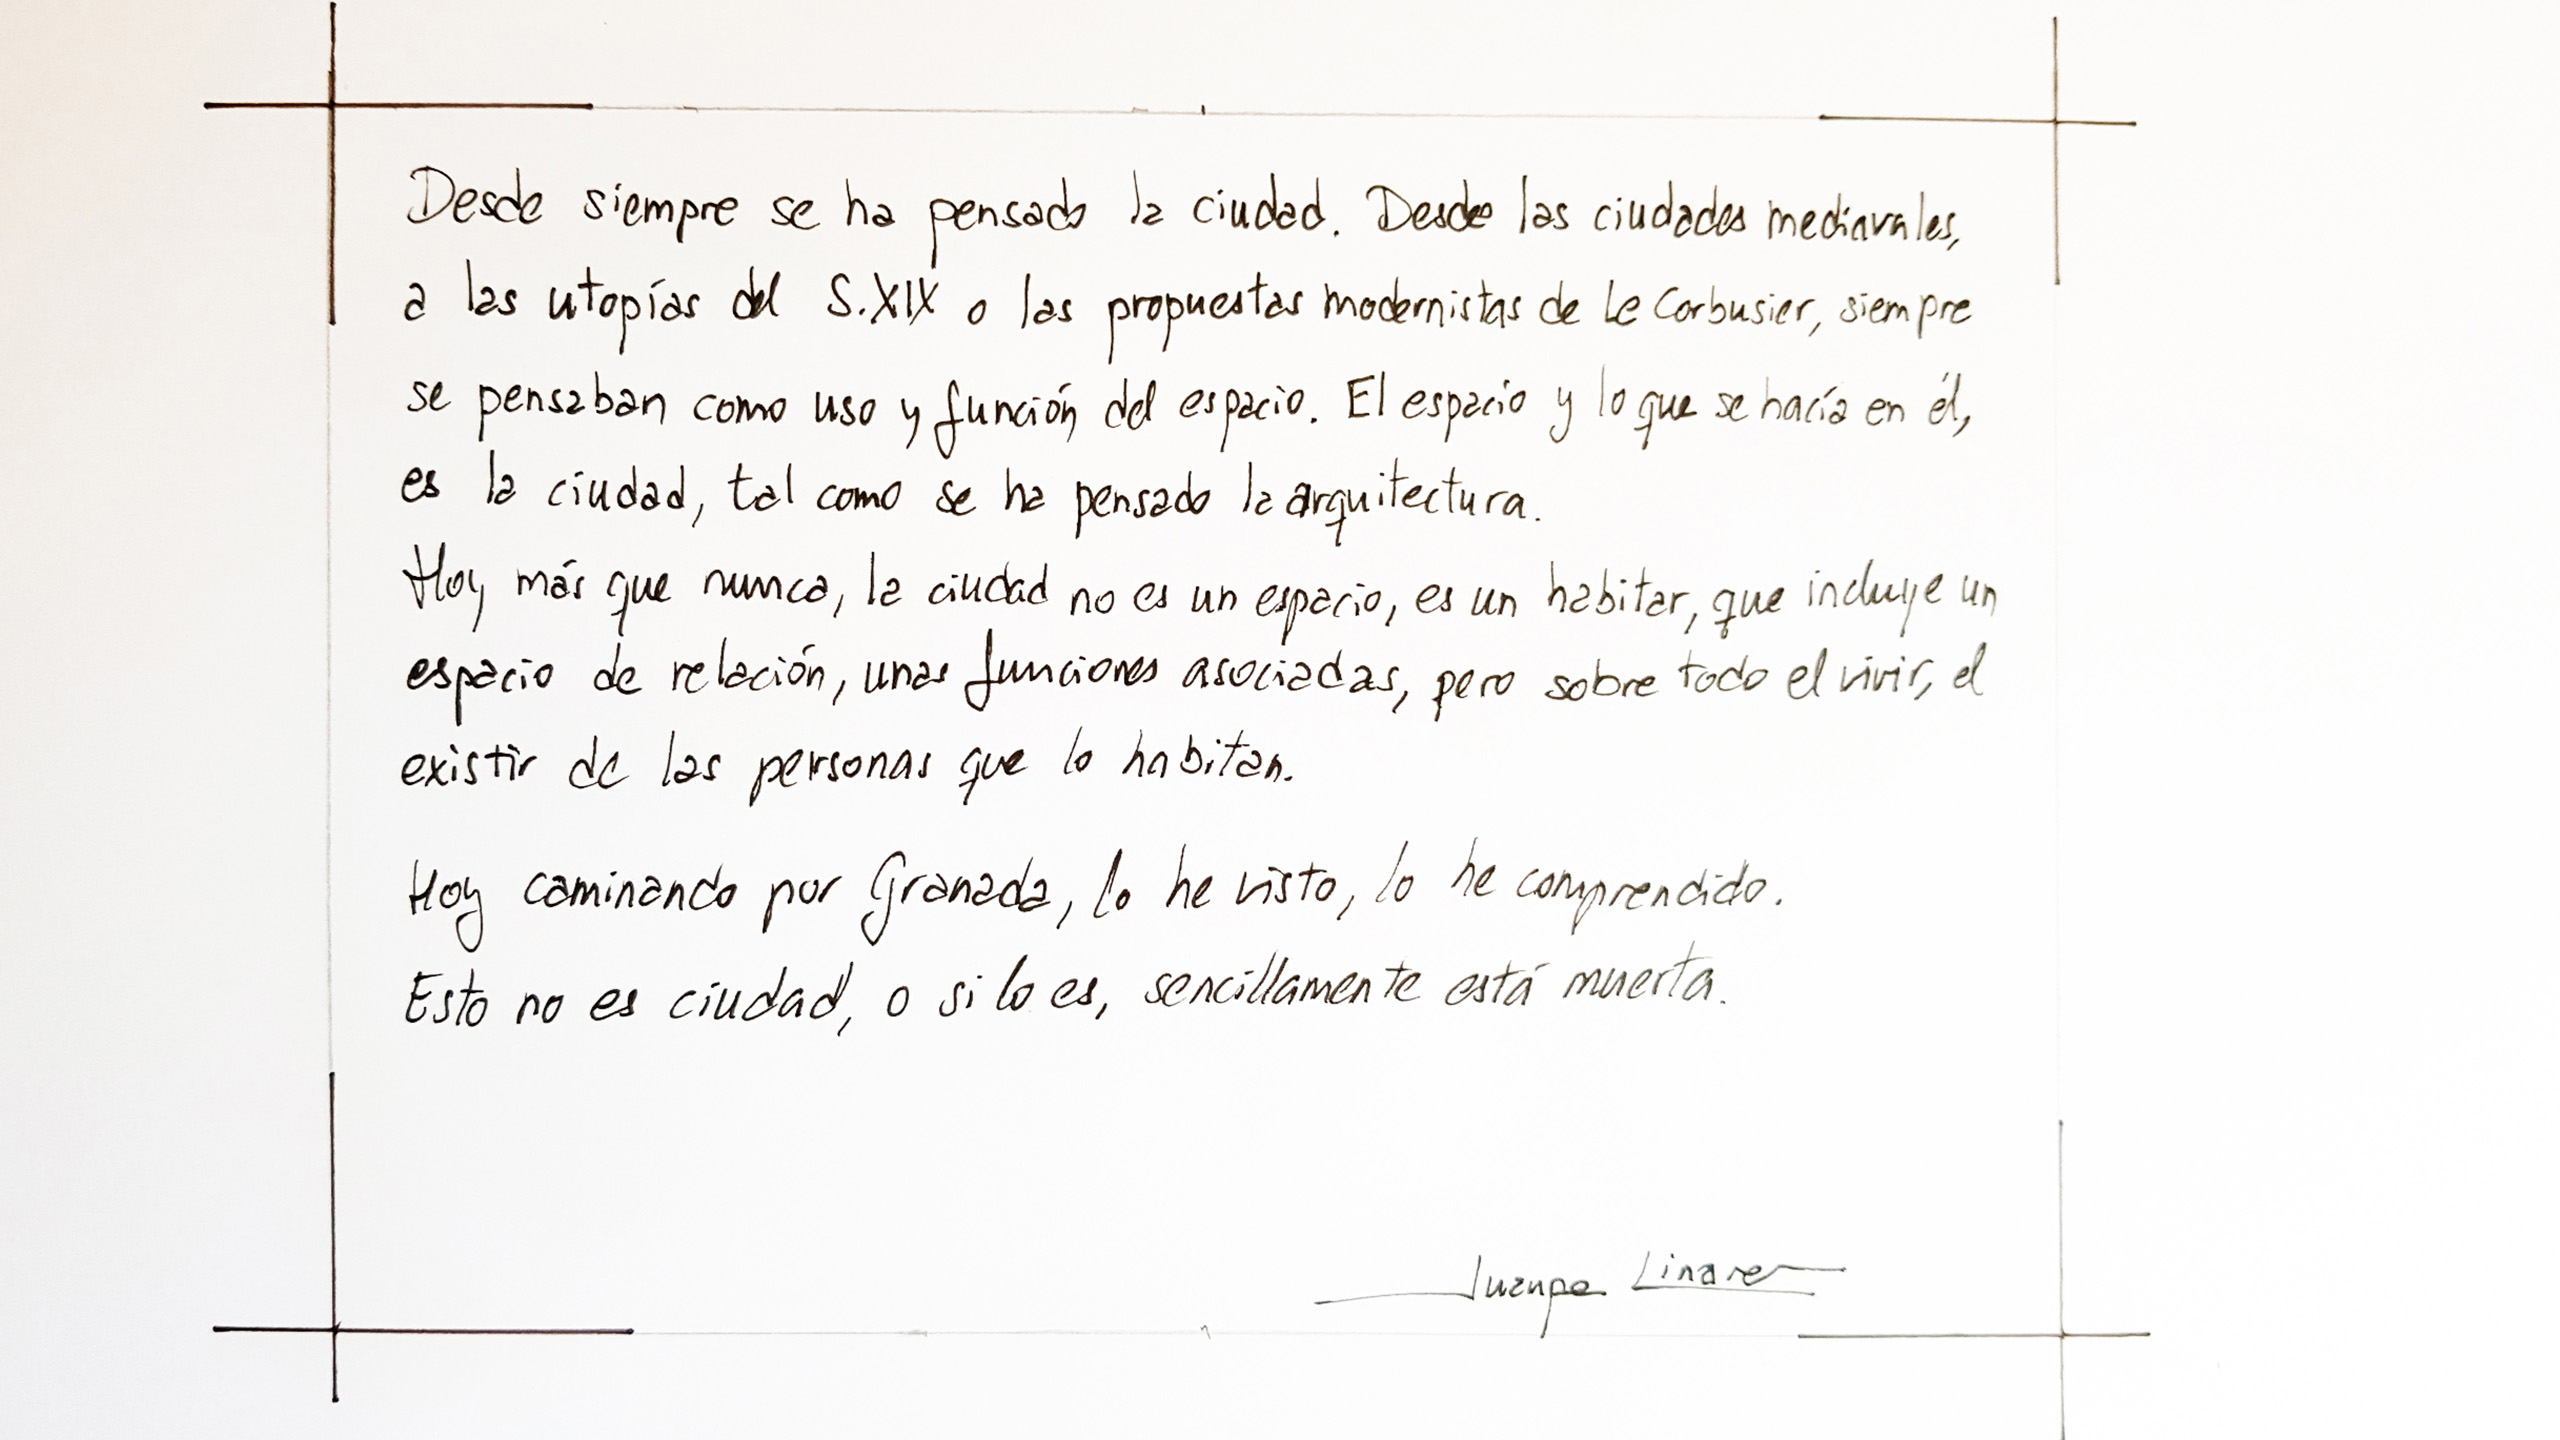 Desde siempre se ha pensado la ciudad. Desde las ciudades medievales,
a las utopías del S.XIX o las propuestas modernistas de Le Corbusier, siempre
se pensaban como uso y función del espacio. El espacio y lo que se hacía en él,
es la ciudad, tal como se ha pensado la arquitectura.
Hoy más que nunca, la ciudad no es un espacio, es un habitar, que incluye un
espacio de relación, unas funciones asociadas, pero sobre todo el vivir, el
existir de las personas que lo habitan.
Hoy caminando por Granada, lo he visto, lo he comprendido.
Esto no es ciudad, o si lo es, sencillamente está muerta.
Juanpe Linares